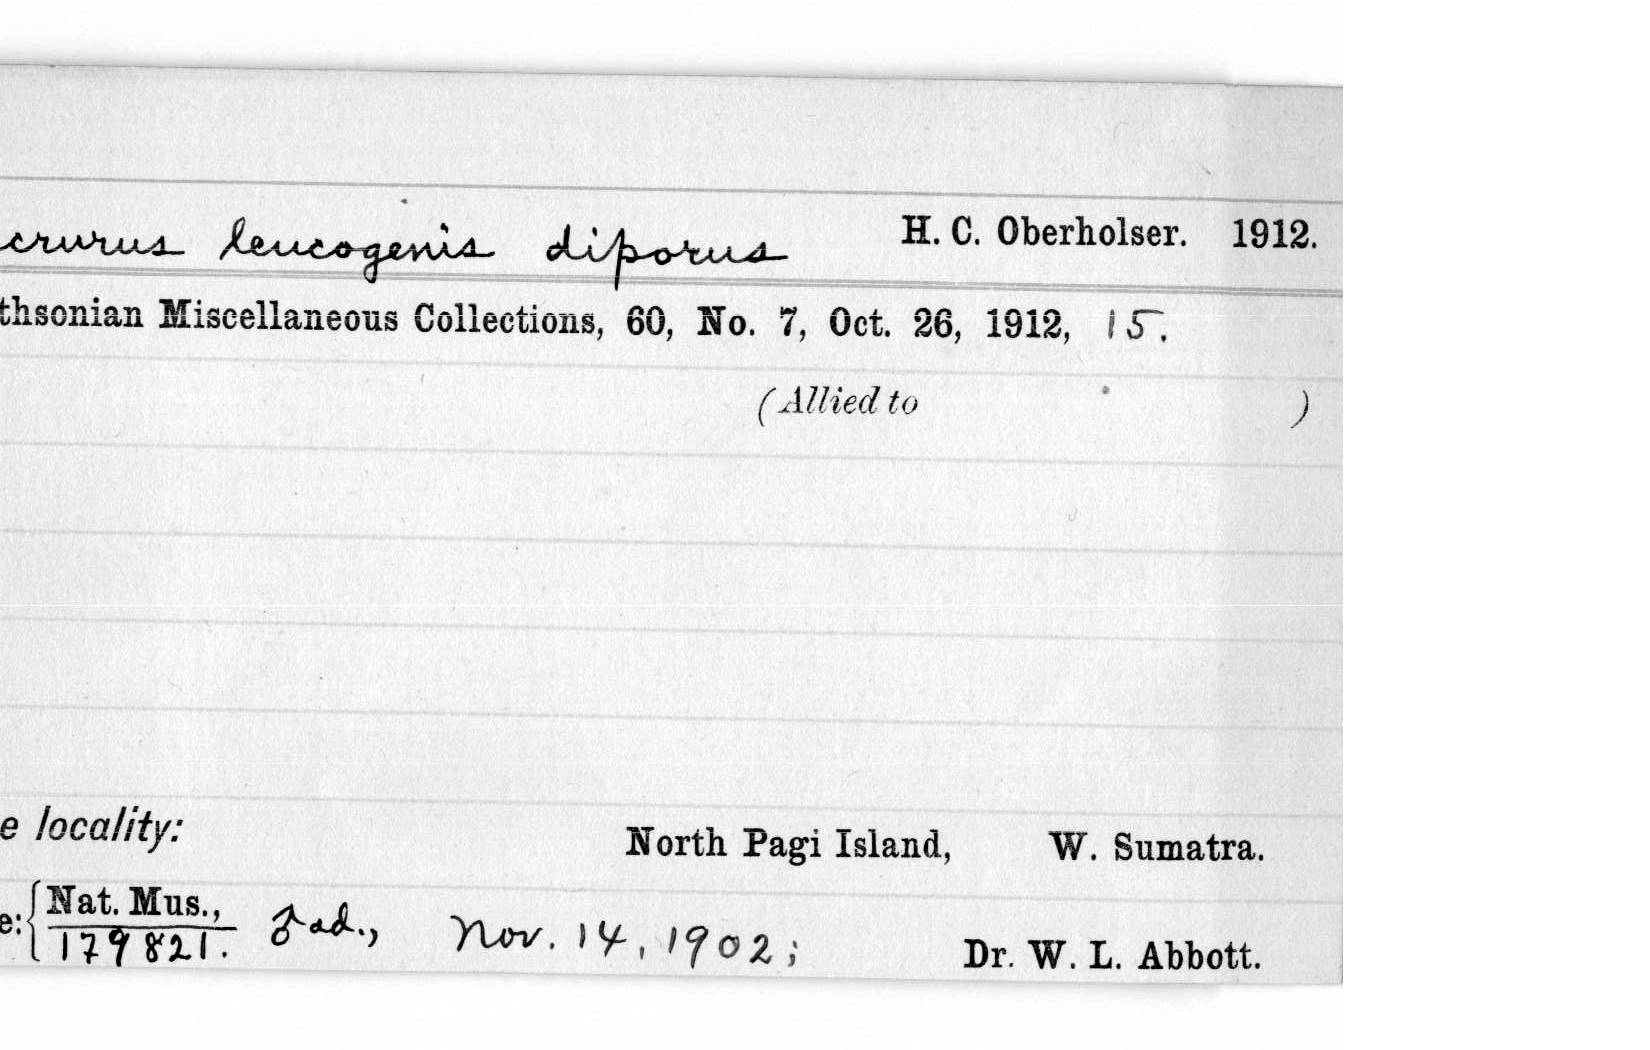 crurus leucogenis diporus H. C. Oberholser. 1912.
thsonian Miscellaneous Collections, 60, No. 7, Oct. 26, 1912, 15.
(Allied to )
e locality: North Pagi Island, W. Sumatra.
e: { Nat. Mus., ♂ ad., Nov. 14, 1902; Dr. W. L. Abbott.
179821.